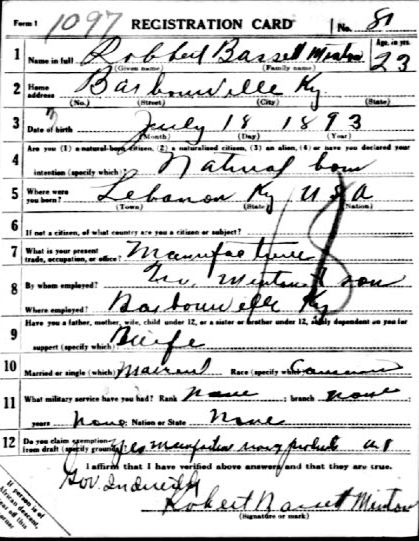 Form 1 1097 REGISTRATION CARD No. 81
1 Name in full Robbert Bassett Minton Age, in yrs. 23
(Given name) (Family name)
2 Home address Barbourville Ky.
(No.) (Street) (City) (State)
3 Date of birth July 18 1893
(Month) (Day) (Year)
Are you (1) a natural-born citizen, (2) a naturalized citizen, (3) an alien, (4) or have you declared your
4 intention (specify which)? Natural born
5 Where were you born? Lebanon Ky USA
(Town) (State) (Nation)
6 If not a citizen, of what country are you a citizen or subject?
7 What is your present trade, occupation, or office? Manufacture
8 By whom employed? Minton & son
Where employed? Barbourville Ky
9 Have you a father, mother, wife, child under 12, or a sister or brother under 12, solely dependent on you for
support (specify which)? Wife
10 Married or single (which) Married Race (specify which)
11 What military service have you had? Rank none ; branch none
years none Nation or State None
12 Do you claim exemption from draft (specify grounds)? yes
I affirm that I have verified above answers and that they are true.
Gov Indirectly
Robert Bassett Minton
(Signature or mark)
If person is of African descent,
off this
corner